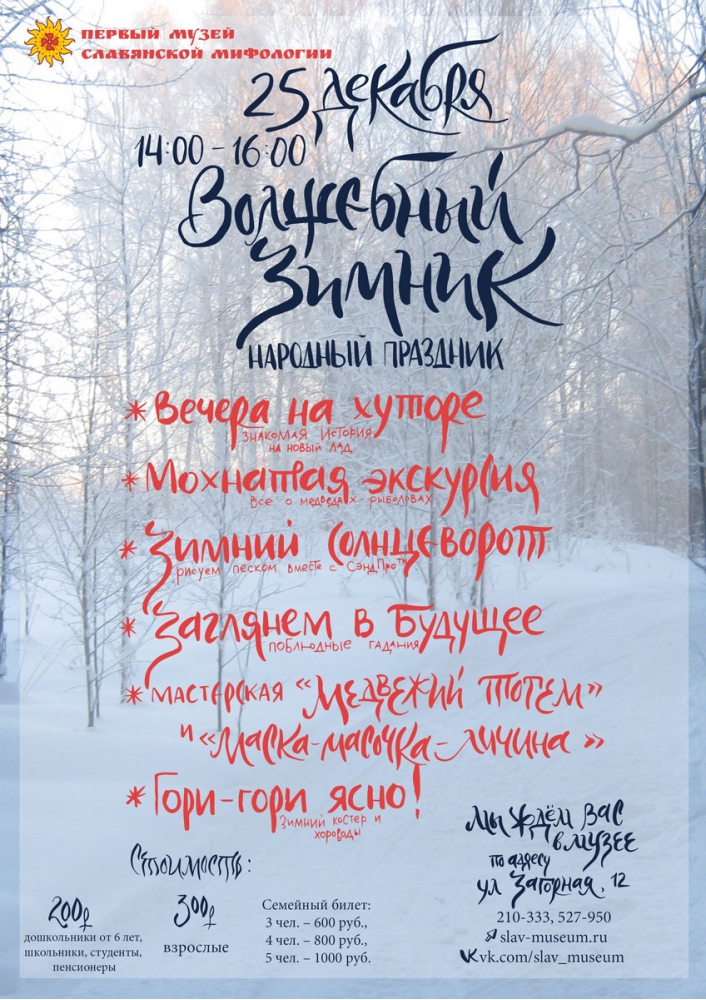 ПЕРВЫЙ МУЗЕЙ
СЛАВЯНСКОЙ МИФОЛОГИИ
25 декабря
14:00 - 16:00
Волшебный
Зимник
НАРОДНЫЙ ПРАЗДНИК
* Вечера на хуторе
ЗНАКОМАЯ ИСТОРИЯ
НА НОВЫЙ ЛАД
* Мохнатая экскурсия
все о медведях-рыболовах
* Зимний Солнцеворот
рисуем песком вместе с СэндПро™
* Заглянем в Будущее
поблюдные гадания
* мастерская "Медвежий Тотем"
и "Маска-масочка-личина"
* Гори-гори ясно!
Зимний костер и
хороводы
Мы ждём вас
в музее
по адресу
ул Загорная, 12
Стоимость:
200р
дошкольники от 6 лет,
школьники, студенты,
пенсионеры
300р
взрослые
Семейный билет:
3 чел. – 600 руб.,
4 чел. – 800 руб.,
5 чел. – 1000 руб.
210-333, 527-950
slav-museum.ru
vk.com/slav_museum